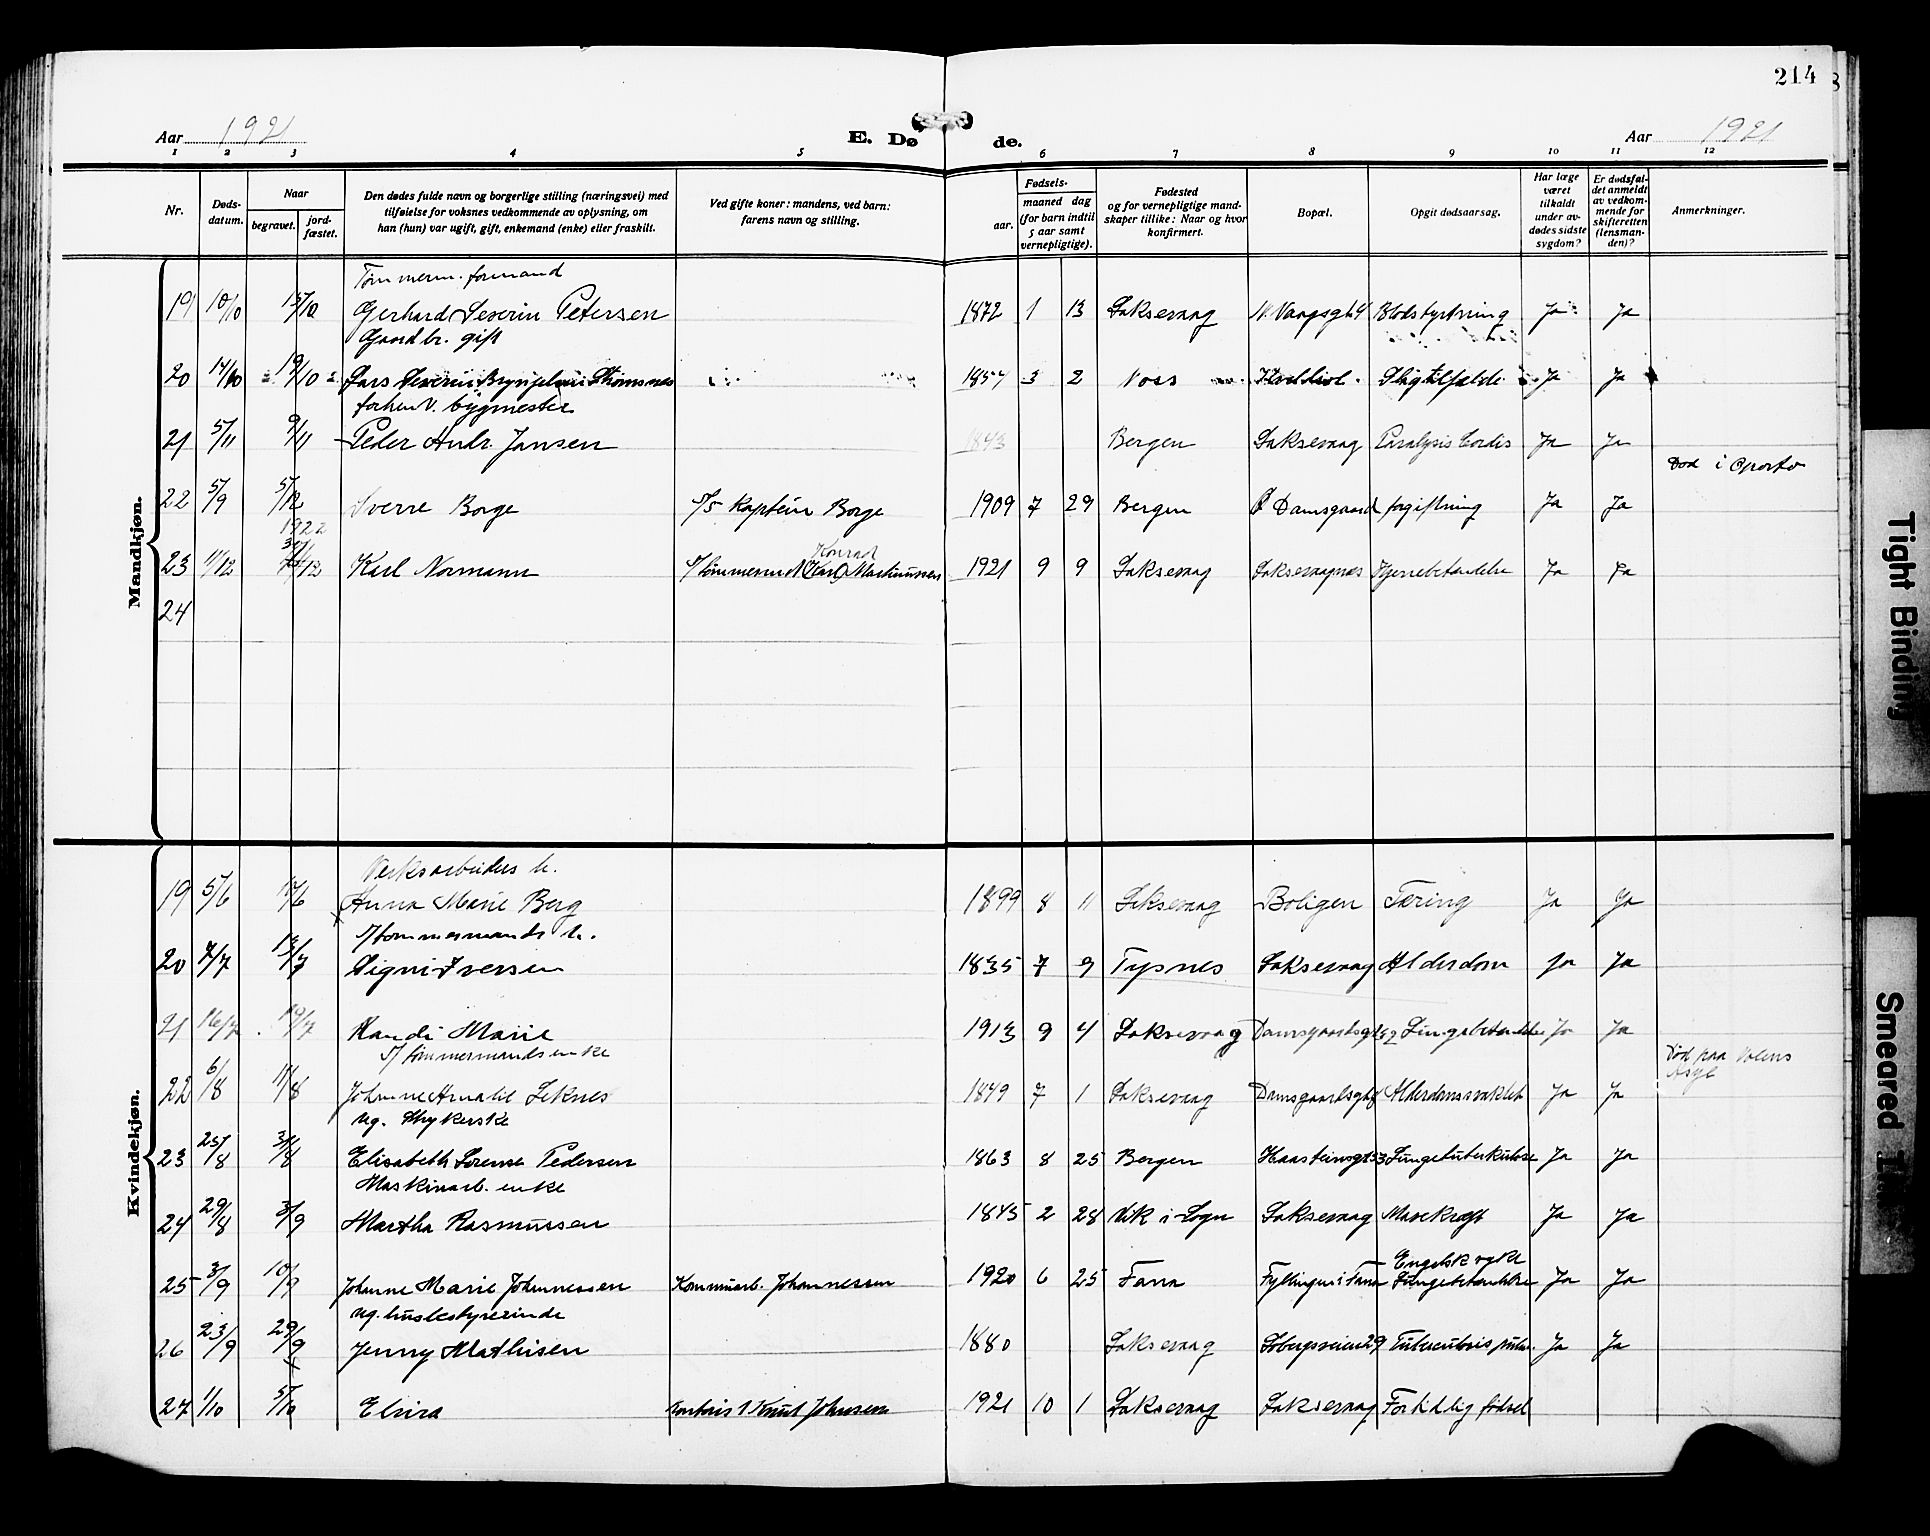 214
Aar 1921
E. Dø de.
Aar 1921
1 2 3 4 5 6 7 8 9 10 11 12
Nr.
Døds-datum.
Naar
begravet.
jord-fæstet.
Den dødes fulde navn og borgerlige stilling (næringsvei) med
tilføielse for voksnes vedkommende av oplysning, om
han (hun) var ugift, gift, enkemand (enke) eller fraskilt.
Ved gifte koner: mandens, ved barn:
farens navn og stilling.
Fødsels-
aar.
maaned dag
(for barn indtil
5 aar samt
vernepligtige).
Fødested
og for vernepligtige mand-
skaper tillike: Naar og hvor
konfirmert.
Bopæl.
Opgit dødsaarsag.
Har læge
været
tilkaldt
under av-
dødes sidste
sygdom?
Er dødsfal-
det anmeldt
av vedkom-
mende for
skifteretten
(lensman-
den)?
Anmerkninger.
Mandkjøn.
Tømmerm. formand
19 10/10 15/10 Gerhard Severin Petersen 1872 1 13 Laksevaag Blodstyrtning Ja Ja
Gaardbr. gift
20 14/10 19/10 Lars Severin Strømsnes 1857 3 2 Voss Slagtilfælde Ja Ja
forhenv. bygmester
21 5/11 9/11 Peder Andr. Jansen 1843 Bergen Laksevaag Paralysis Cordis Ja Ja
Død i Oporto
22 5/9 5/12 Sverre Borge s/s Kaptein Borge 1909 7 29 Bergen Ø Damsgaard forgiftning Ja Ja
1922
Konrad
23 11/12 Karl Normann s/ tømmermd (Karl) Martinussen 1921 9 9 Laksevaag Laksevaagnes Hjernebetændelse Ja Ja
24
Kvindekjøn.
Verksarbeiders h.
19 5/6 Anna Marie Berg 1899 8 11 Laksevaag Boligen Tæring Ja Ja
s/ tømmermands h.
20 7/7 13/7 Signi Iversen 1835 7 9 Tysnes Laksevaag Alderdom Ja Ja
21 16/7 19/7 Randi Marie 1913 9 4 Laksevaag Ja Ja
s/ tømmermands enke
Død paa
Asyl
22 6/8 11/8 Johanne Amalie Seknes 1849 7 1 Laksevaag Alderdomssvakhet Ja Ja
ug. Strykerske
23 25/8 Elisabeth Lorense Pedersen 1863 8 25 Bergen Lungetuberkulose Ja Ja
Maskinarb. enke
24 29/8 3/9 Martha Rasmussen 1845 2 28 Vik i Sogn Laksevaag Mavekræft Ja Ja
Engelsk syke
25 3/9 10/9 Johanne Marie Johannessen Kommuarb. Johannessen 1920 6 25 Fana Fyllingen i Fana Lungebetændelse Ja Ja
ug. husbestyrerinde
26 23/9 29/9 Jenny Mathisen 1880 Laksevaag Tuberculosis pulm. Ja Ja
27 1/10 5/10 Elvira Knut Johnsen 1921 10 1 Laksevaag Laksevaag For tidlig fødsel
Tight Binding
Smeared